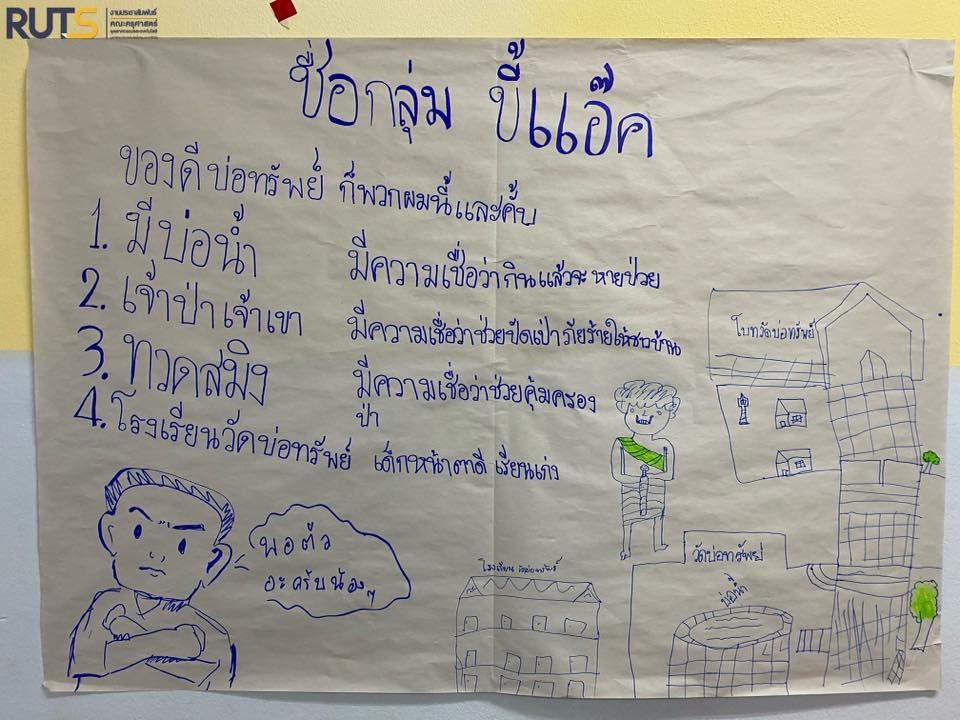 RUTS
งานประชาสัมพันธ์
คณะครุศาสตร์
อุตสาหกรรมและเทคโนโลยี
ชื่อกลุ่ม ขี้แอ๊ค
ของดีบ่อทรัพย์ ก็พวกผมนี้และคั้บ
1. มีบ่อน้ำ มีความเชื่อว่ากินแล้วจะหายป่วย
2. เจ้าป่าเจ้าเขา มีความเชื่อว่าช่วยปัดเป่าภัยร้ายให้ชาวบ้าน
3. ทวดสมิง มีความเชื่อว่าช่วยคุ้มครอง
ป่า
4. โรงเรียนวัดบ่อทรัพย์ เด็กหน้าตาดี เรียนเก่ง
โบทวัดบ่อทรัพย์
พอตัว
อะครับน้องๆ
โรงเรียน วัดบ่อทรัพย์
วัดบ่อทรัพย์
บ่อน้ำ